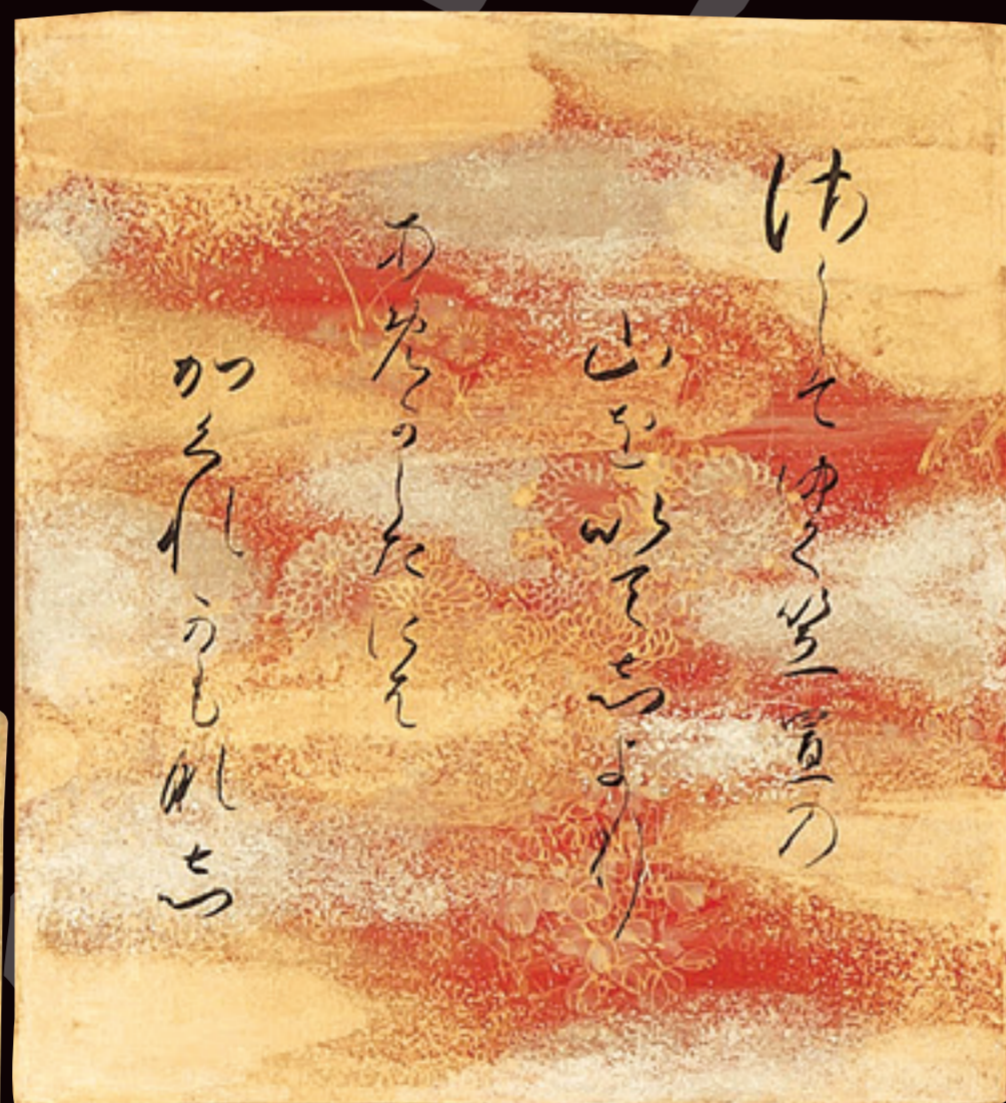 さしてゆく笠置の
山をいてしより
あめかしたには
かくれかもなし